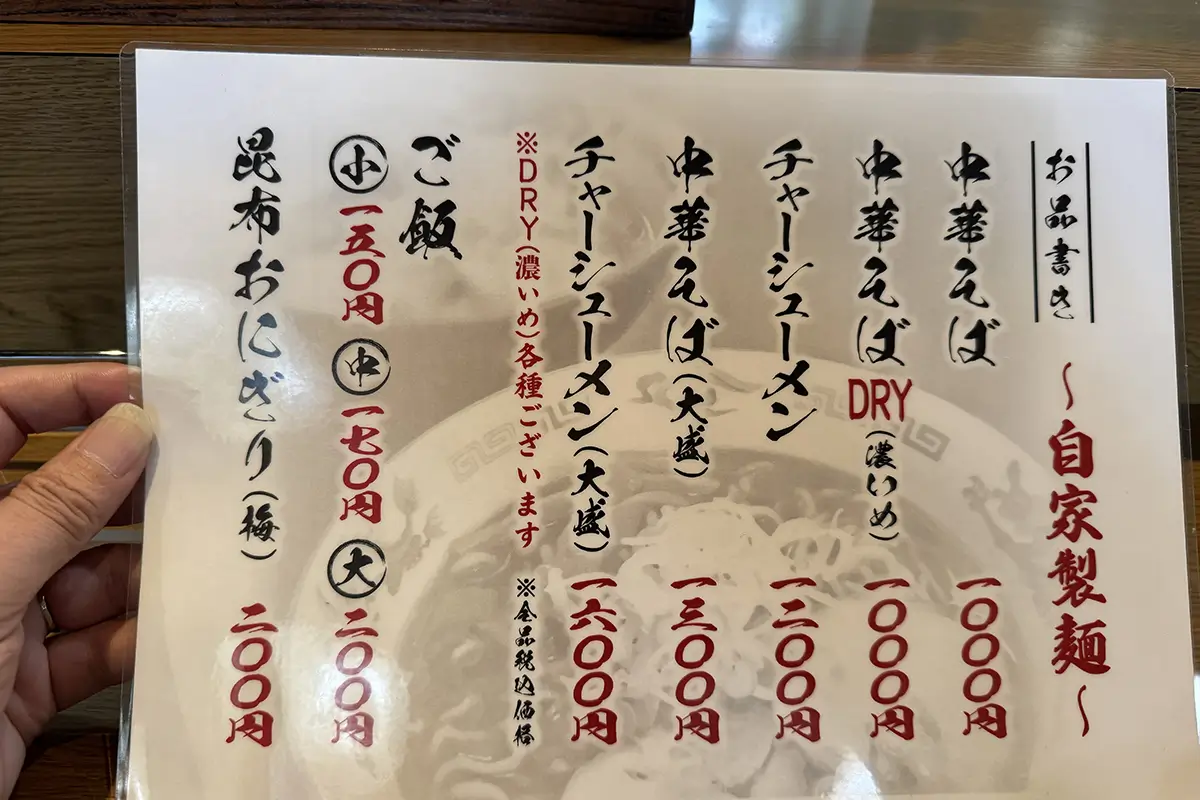 お品書き
〜自家製麺〜
中華そば 一〇〇〇円
中華そばDRY(濃いめ) 一〇〇〇円
チャーシューメン 一二〇〇円
中華そば(大盛) 一三〇〇円
チャーシューメン(大盛) 一六〇〇円
※DRY(濃いめ)各種ございます
※全品税込価格
ご飯
小 一五〇円 中 一七〇円 大 二〇〇円
昆布おにぎり(梅) 二〇〇円